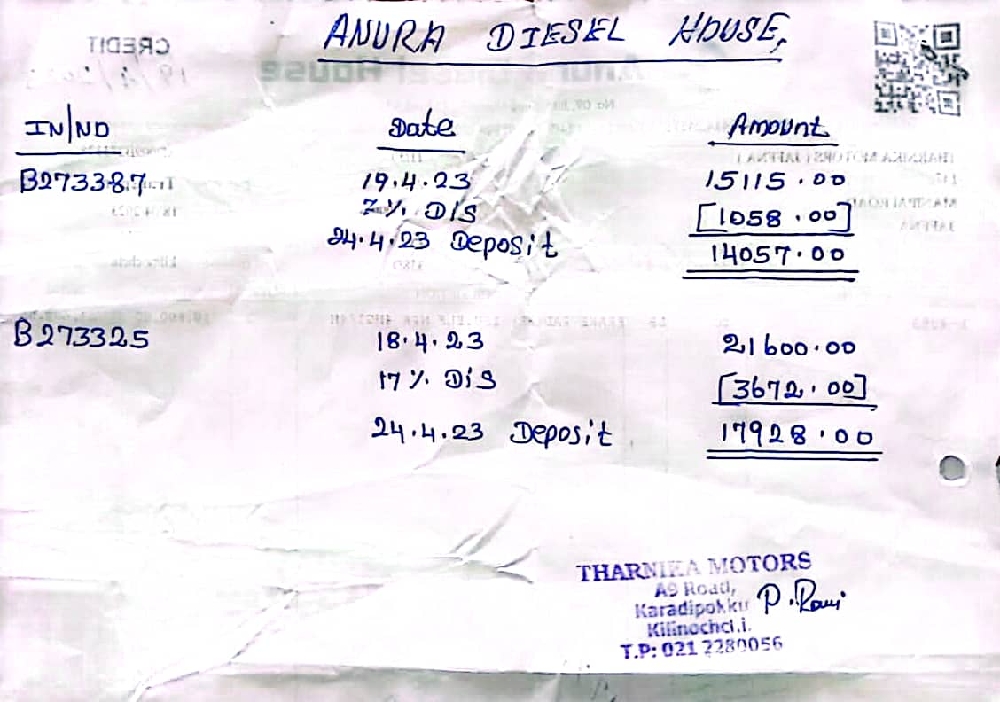 ANURA DIESEL HOUSE,
CREDIT
IN/NO Date Amount
B273387 19.4.23 15115.00
7% DIS [1058.00]
24.4.23 Deposit 14057.00
B273325 18.4.23 21600.00
17% DIS [3672.00]
24.4.23 Deposit 17928.00
THARNIKA MOTORS
A9 Road,
Karadipokku P. Ravi
Kilinochchi.
T.P: 021 2280056